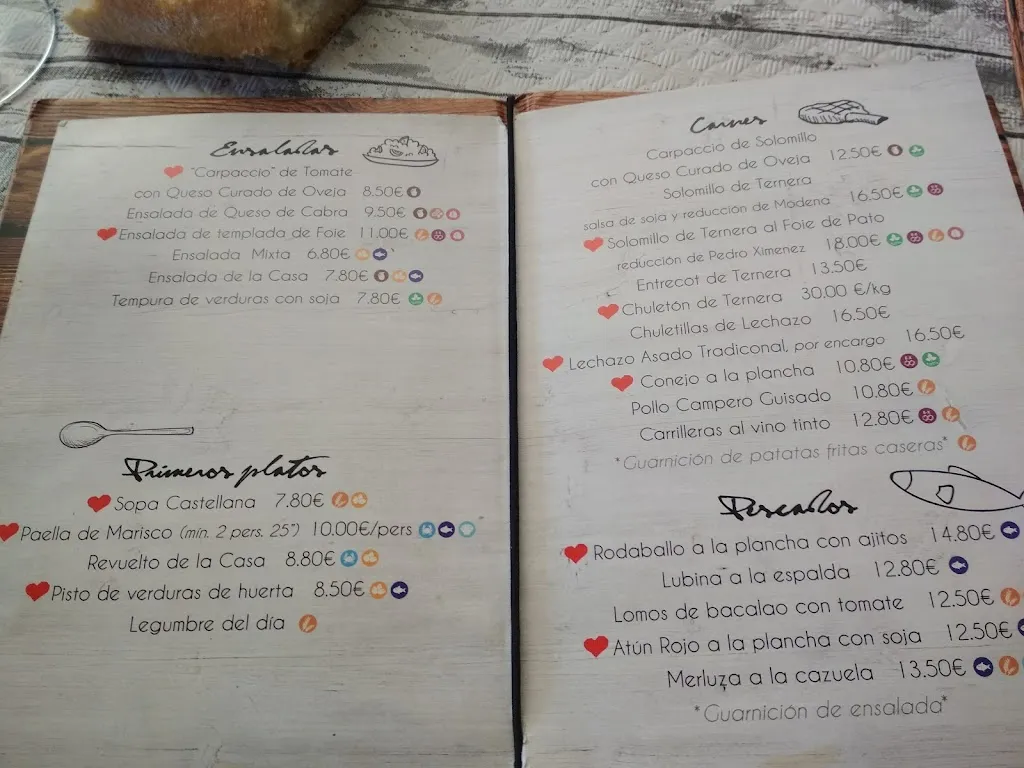 Ensaladas
"Carpaccio" de Tomate
con Queso Curado de Oveja 8.50€
Ensalada de Queso de Cabra 9.50€
Ensalada de templada de Foie 11.00€
Ensalada Mixta 6.80€
Ensalada de la Casa 7.80€
Tempura de verduras con soja 7.80€
Primeros platos
Sopa Castellana 7.80€
Paella de Marisco (mín. 2 pers. 25") 10.00€/pers
Revuelto de la Casa 8.80€
Pisto de verduras de huerta 8.50€
Legumbre del día
Carnes
Carpaccio de Solomillo
con Queso Curado de Oveja 12.50€
Solomillo de Ternera
salsa de soja y reducción de Módena 16.50€
Solomillo de Ternera al Foie de Pato
reducción de Pedro Ximenez 18.00€
Entrecot de Ternera 13.50€
Chuletón de Ternera 30.00 €/kg
Chuletillas de Lechazo 16.50€
Lechazo Asado Tradiconal, por encargo 16.50€
Conejo a la plancha 10.80€
Pollo Campero Guisado 10.80€
Carrilleras al vino tinto 12.80€
*Guarnición de patatas fritas caseras*
Pescados
Rodaballo a la plancha con ajitos 14.80€
Lubina a la espalda 12.80€
Lomos de bacalao con tomate 12.50€
Atún Rojo a la plancha con soja 12.50€
Merluza a la cazuela 13.50€
*Guarnición de ensalada*